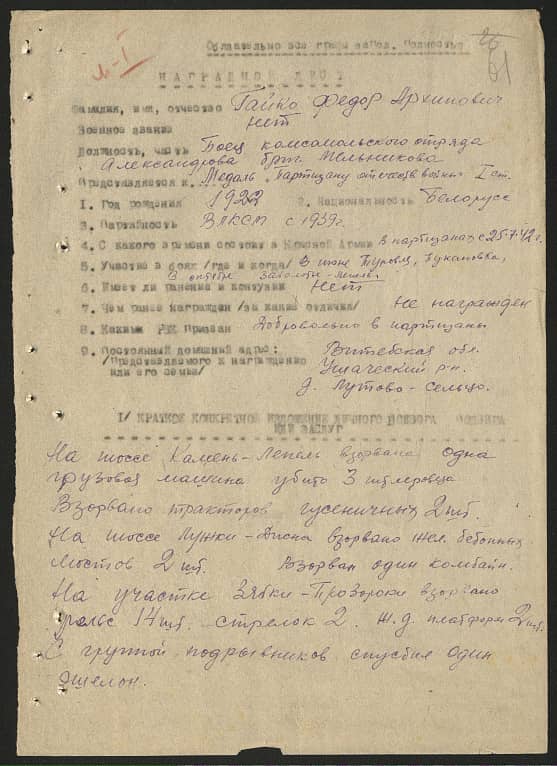 Обязательно все графы запол. полностью
61
НАГРАДНОЙ ЛИСТ
Фамилия, имя, отчество Гайко Федор Архипович
Военное звание нет
Должность, часть Боец комсомольского отряда
Александрова бриг. Мельникова
Представляется к Медаль "Партизану отечеств войны" I ст.
1. Год рождения 1922 2. Национальность Белорус
3. Партийность ВЛКСМ с 1939г.
4. С какого времени состоит в Красной Армии в партизанах с 25.7.42г.
5. Участие в боях /где и когда/ В июне
В октябре
6. Имеет ли ранение и контузии Нет
7. Чем ранее награжден /за какие отличия/ Не награжден
8. Каким РВК призван Добровольно в партизаны
9. Постоянный домашний адрес: Витебская обл.
/Представляемого к награждению Ушачский р-н.
или его семьи/ д. Лутово-Сельцо.
I/ КРАТКОЕ КОНКРЕТНОЕ ИЗЛОЖЕНИЕ ЛИЧНОГО БОЕВОГО ПОДВИГА
ИЛИ ЗАСЛУГ
На шоссе Камень-Лепель взорвана одна
грузовая машина убито 3 гитлеровца
Взорвано тракторов гусеничных 2 шт.
На шоссе Лужки-Дисна взорвано жел. бетонных
мостов 2 шт. Взорван один комбайн.
На участке Зябки-Прозороки взорвано
рельс 14 шт. стрелок 2. ж.д. платформ 2 шт.
С группой подрывников спустил один
эшелон.